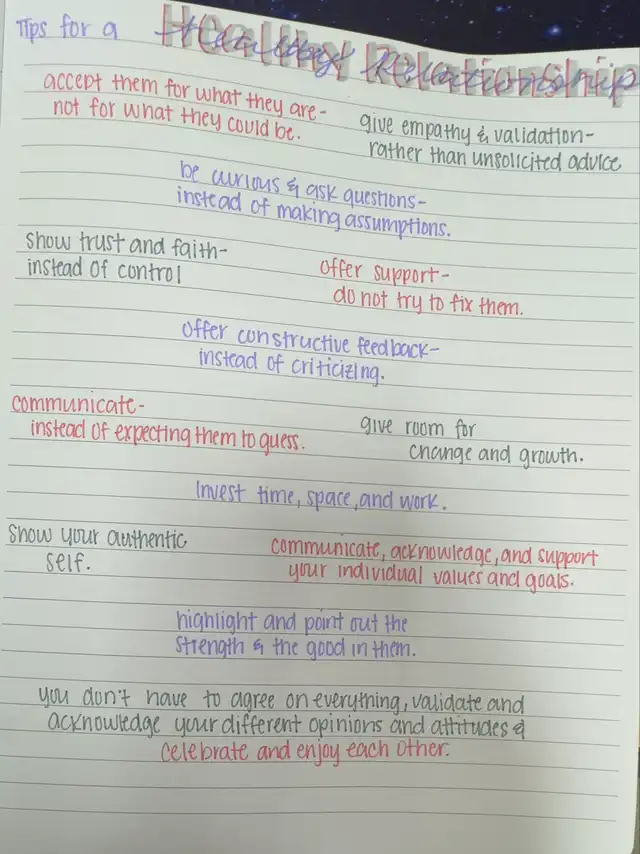 Tips for a Healthy Relationship
accept them for what they are-
not for what they could be.
give empathy & validation-
rather than unsolicited advice
be curious & ask questions-
instead of making assumptions.
Show trust and faith-
instead of control
offer support-
do not try to fix them.
offer constructive feedback-
instead of criticizing.
communicate-
instead of expecting them to guess.
give room for
change and growth.
Invest time, space, and work.
Show your authentic
self.
communicate, acknowledge, and support
your individual values and goals.
highlight and point out the
strength & the good in them.
you don't have to agree on everything, validate and
acknowledge your different opinions and attitudes &
celebrate and enjoy each other.